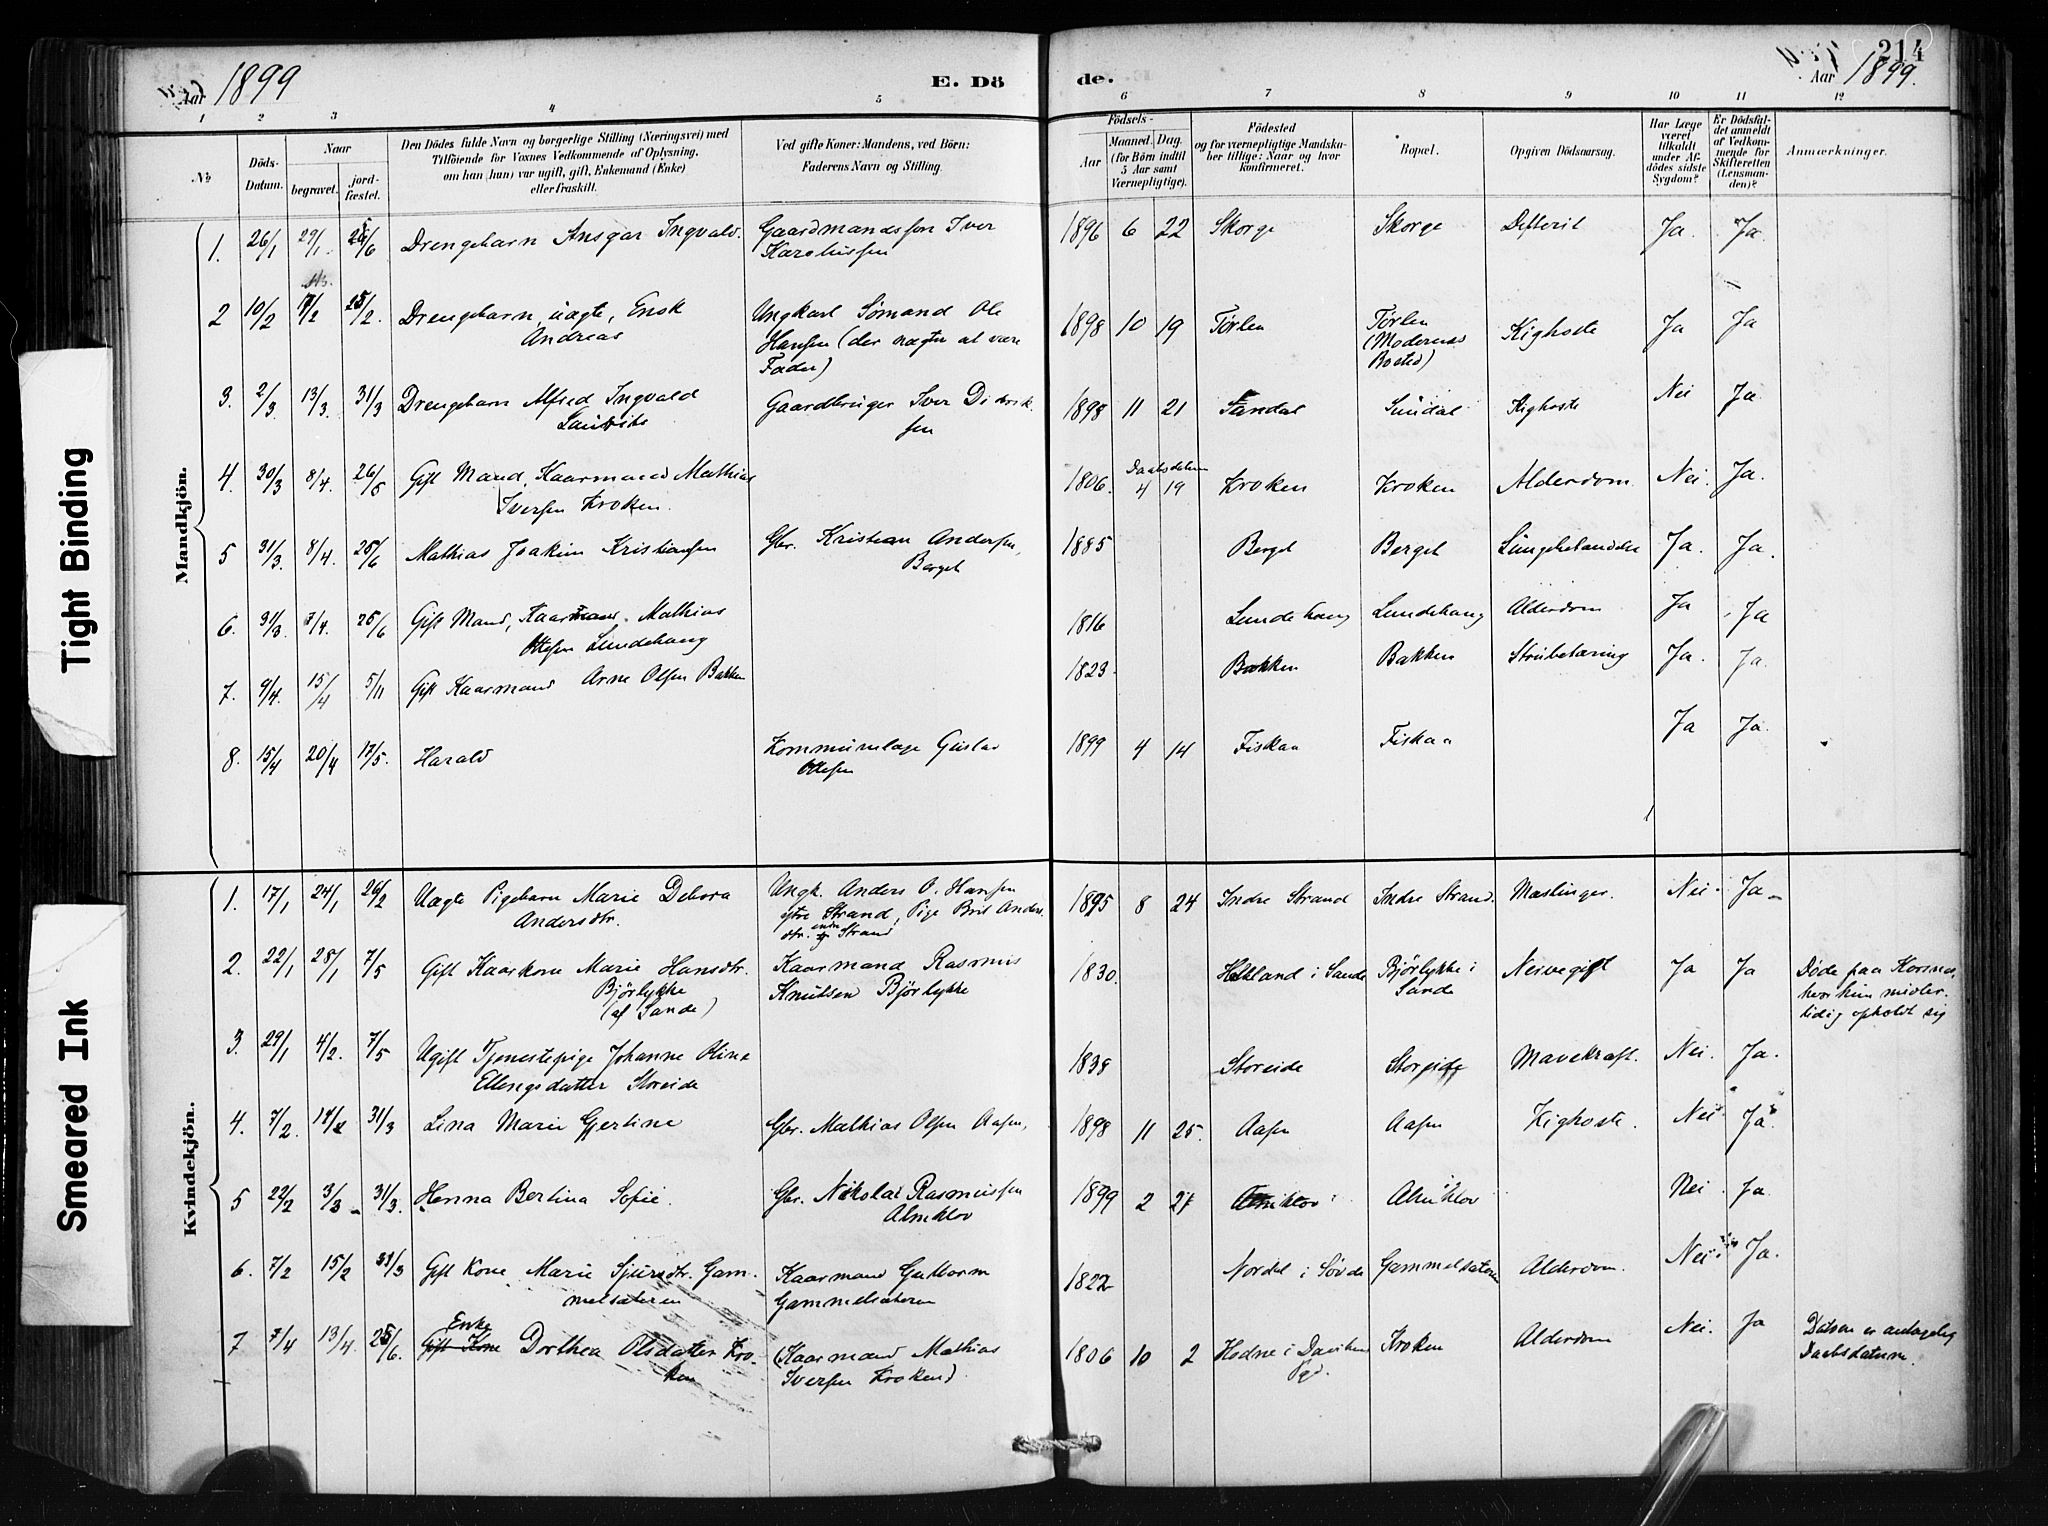 Aar 1899
E. Döde.
214
Aar 1899.
1 2 3 4 5 6 7 8 9 10 11 12
No
Döds-Datum.
Naar
begravet.
jord-fæstet.
Den Dödes fulde Navn og borgerlige Stilling (Næringsvei) med
Tilföiende for Voxnes Vedkommende af Oplysning,
om han (hun) var ugift, gift, Enkemand (Enke)
eller fraskilt.
Ved gifte Koner: Mandens, ved Börn:
Faderens Navn og Stilling.
Födsels-
Aar
Maaned. Dag.
(for Börn indtil
5 Aar samt
Værnepligtige).
Födested
og for værnepligtige Mandska-
ber tillige: Naar og hvor
konfirmeret.
Bopæl.
Opgiven Dödsaarsag.
Har Læge
været
tilkaldt
under Af-
dödes sidste
Sygdom?
Er Dödsfal-
det anmeldt
af Vedkom-
mende for
Skifteretten
(Lensman-
den)?
Anmærkninger.
Mandkjön.
1. 26/1 29/1 25/6 Drengebarn Ansgar Ingvald. Gaardmandssøn Iver 1896 6 22 Skorge Skorge Defterit Ja. Ja.
Karolussen
2 10/2 17/2 25/2. Drengebarn, uægte, Ensk Ungkarl Sømand Ole 1898 10 19 Tørlen Tørlen Kighoste Ja Ja
Andreas Hansen (der nægter at være (Moderens
Fader) Bosted)
3. 2/3 13/3. 31/3 Drengebarn Alfred Ingvald Gaardbruger Iver Didrik- 1898 11 21 Sundal Kighoste Nei Ja.
Lauritz sen
4. 30/3 8/4. 26/5 Gift Mand, Kaarmand Mathias 1806. Daabsdatum Kroken Kroken Alderdom. Nei. Ja.
Iversen Kroken. 4 19
5 31/3. 8/4. 25/6 Mathias Joakim Kristiansen Gbr. Kristian Andersen, 1885 Berget Berget Lungebetændelse Ja. Ja.
Berget
6. 31/3 7/4. 25/6 Gift Mand, Kaarmand. Mathias 1816 Lundehaug Lundehaug Alderdom Ja Ja
Ottesen Lundehaug
7. 9/4. 15/4 5/11 Gift Kaarmand Arne Olsen Bakken 1823 Bakken Bakken Strubetæring Ja. Ja.
8. 15/4 20/4 17/5. Harald Kommunelæge Gustav 1899 4 14 Fiskaa Fiskaa Ja Ja.
Ottesen
Kvindekjön.
1. 17/1 24/1 26/2 Uægte Pigebarn Marie Debora Ungk. Anders O. Hansen 1895 8 24 Indre Strand Indre Strand. Mæslinger. Nei. Ja.
Andersdtr. ytre Strand, Pige Brit Anders-
dtr. indre Strand
2. 22/1 28/1 7/5 Gift Kaarkone Marie Hansdtr. Kaarmand Rasmus 1830. i Sande Bjørlykke i Ja Ja Døde paa Korsnes,
Bjørlykke Knutsen Bjørlykke Sande hvor hun midler-
(af Sande) tidig opholdt sig
3. 29/1 4/2. 7/5 Ugift Tjenestepige Johanne Oline 1838 Storeide Storeide Mavekræft. Nei. Ja.
Ellengsdatter Storeide
4. 7/2. 31/3 Lina Marie Gjertine Gbr. Mathias Olsen Aasen, 1898 11 25. Aasen Aasen Kighoste. Nei Ja.
5 22/2 3/3 31/3. Henna Bertina Sofie. Gbr. Nikolai Rasmussen 1899 2 Almklov Almklov Nei Ja.
Almklov
6. 7/2 15/2 31/3 Gift Kone Marie Sjursdtr. Gam- Kaarmand Guttorm 1822 Nordal i Søvde Gammelsæteren Alderdom. Nei Ja.
melsæteren Gammelsæteren
7 7/4 13/4. 25/6. Enke Gift Kone Dorthea Olsdatter Kro- (Kaarmand Mathias 1806 10 2 Hodne i Davikens Kroken Alderdom Nei. Ja Datoen er antagelig
ken Iversen Kroken). Pgd. Daabsdatum.
Tight Binding
Smeared Ink